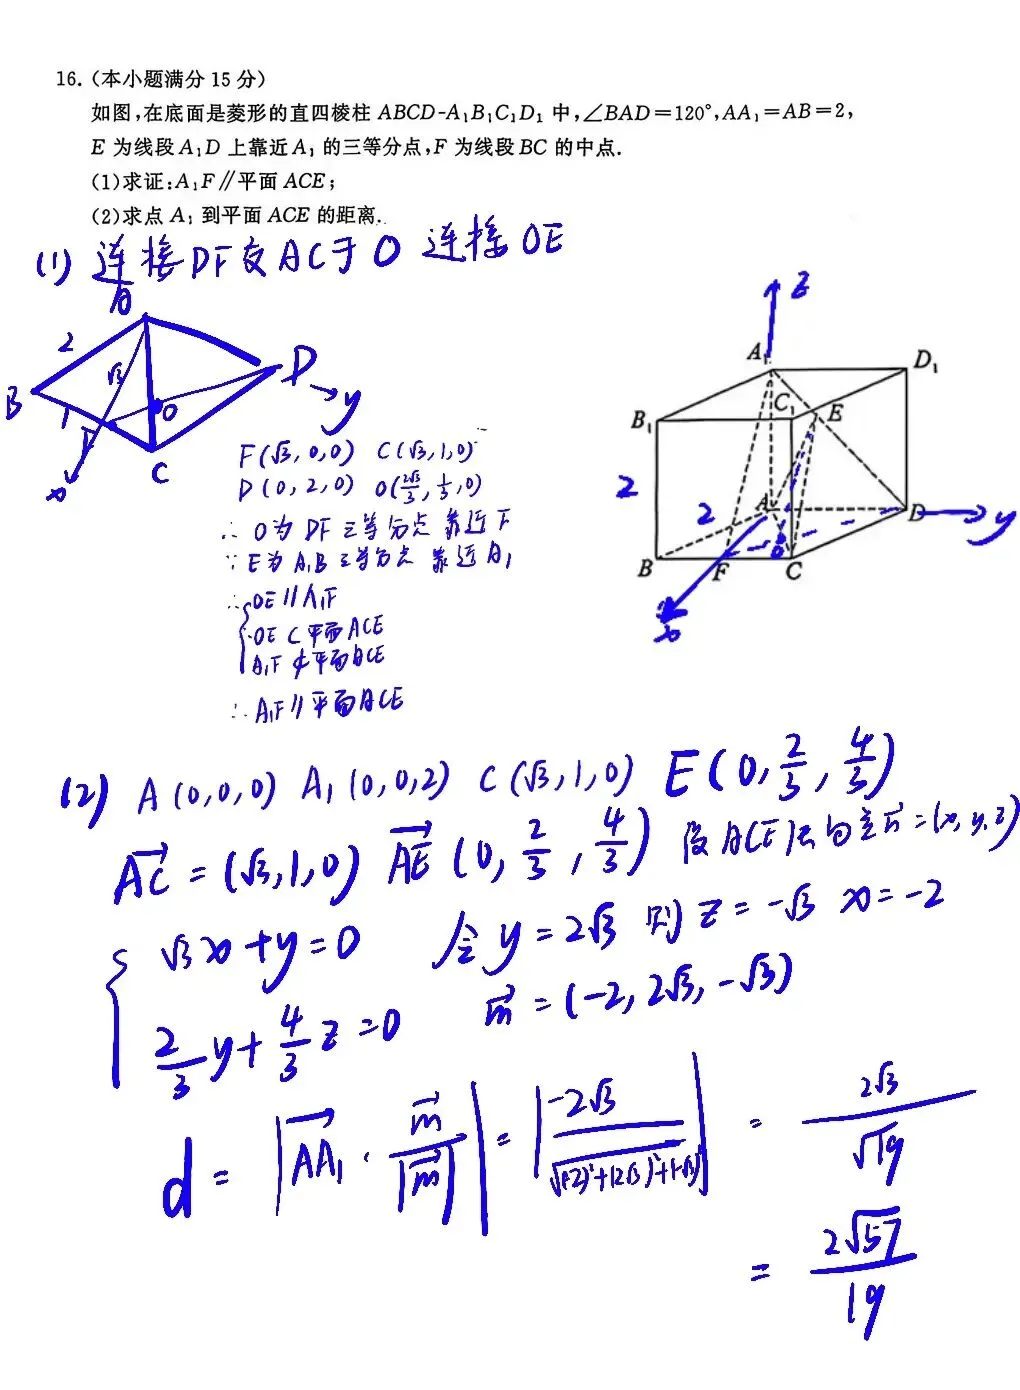 16.(本小题满分15分)
如图,在底面是菱形的直四棱柱ABCD-A₁B₁C₁D₁中,∠BAD=120°,AA₁=AB=2,
E为线段A₁D上靠近A₁的三等分点,F为线段BC的中点.
(1)求证:A₁F∥平面ACE;
(2)求点A₁到平面ACE的距离.
(1) 连接DF交AC于O 连接OE
A
2
√3
B
1
F
O
C
D
y
x
F(√3,0,0) C(√3,1,0)
D(0,2,0) O(2√3/3,1/3,0)
∴ O为DF三等分点 靠近F
∵ E为A₁B三等分点 靠近A₁
∴ OE∥A₁F
OE⊂平面ACE
A₁F⊄平面ACE
∴ A₁F∥平面ACE
z
A₁
D₁
B₁
C₁
E
2
2
A
D
y
B
F
O
C
x
(2) A(0,0,0) A₁(0,0,2) C(√3,1,0) E(0,2/3,4/3)
AC→=(√3,1,0) AE→(0,2/3,4/3) 设ACE法向量n→=(x,y,z)
√3x+y=0 令y=2√3 则z=-√3 x=-2
2/3y+4/3z=0 m→=(-2,2√3,-√3)
d=|AA₁→·m→/|m→||=|-2√3/√((-2)²+(2√3)²+(-√3)²)|=2√3/√19
=2√57/19